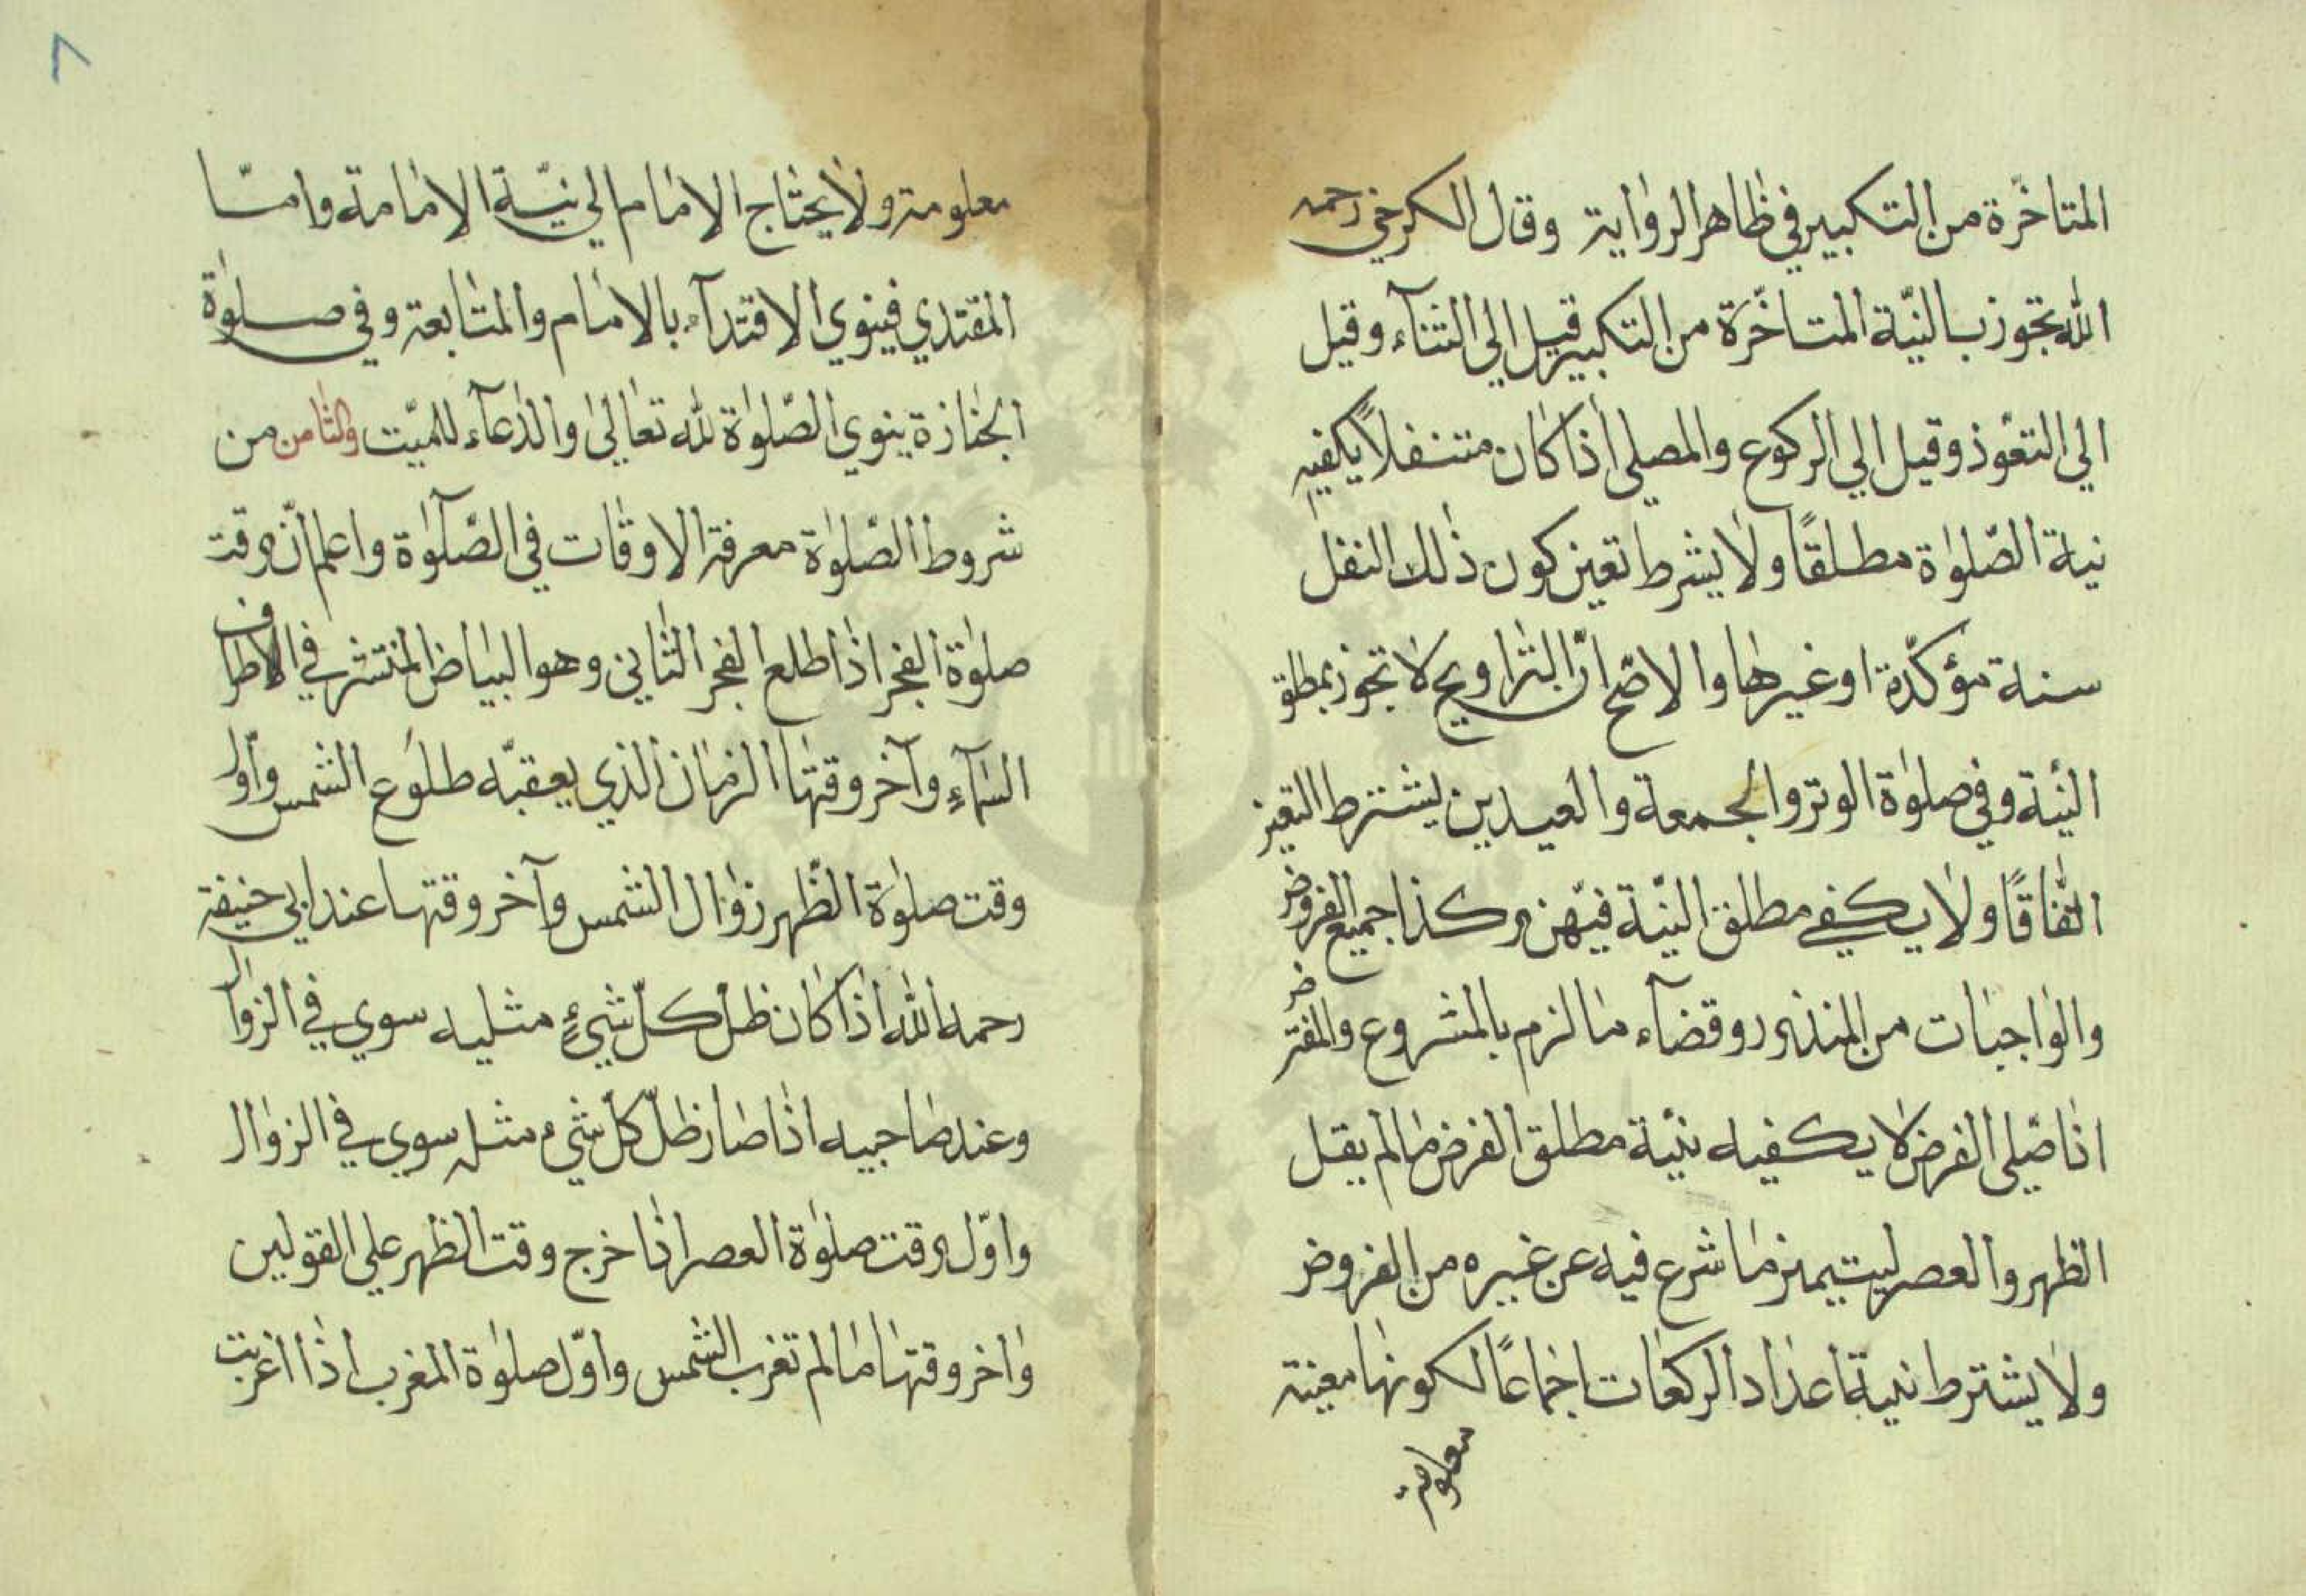 المتاخّرة من التكبير في ظاهر الرواية وقال الكرخي رحمه
الله تجوز بالنيّة المتاخّرة من التكبير قيل الي الثنآء وقيل
الي التعوّذ وقيل الي الركوع والمصلي اذا كان متنفلاً يكفيه
نية الصّلوٰة مطلقًا ولا يشرط تعين كون ذٰلك النفل
سنة مؤكدّة او غيرها والاصّح انّ التراويح لا تجوز بمطلق
النيّة وفي صلوٰة الوتر والجمعة والعيدين يشترط التعين
اتّفاقًا ولا يكفي مطلق النيّة فيهن وكذا جميع الفروض
والواجبات من المنذور وقضآء ما لزم بالمشروع والمفترض
اذا صّلي الفرض لا يكفيه نيّة مطلق الفرض ما لم يقل
الظهر والعصر ليتيميز ما شرع فيه عن غيره من الفروض
ولا يشترط نية اعداد الركعات اجماعًا لكونها معينة
معلومة
٨
معلومة ولا يحتاج الامام الي نيّة الامامة وامّا
المقتدي فينوي الاقتدآء بالامام والمتابعة وفي صلوٰة
الجنازة ينوي الصّلوٰة لله تعالىٰ والدعآء للميّت والثامن من
شروط الصّلوٰة معرفة الاوقات في الصّلوٰة واعلم انّ وقت
صلوٰة الفجر اذا طلع الفجر الثاني وهو البياض المنتشر في الاطراف
السمآء وآخر وقتها الزمان الذي يعقبّه طلوع الشمس واوّل
وقت صلوٰة الظّهر زوال الشمس وآخر وقتها عند ابي حنيفة
رحمه الله اذا كان ظلّ كلّ شيءٍ مثليه سوي في الزوال
وعند صاحبيه اذا صار ظلّ كلّ شيء مثله سوي في الزوال
واوّل وقت صلوٰة العصر اذا خرج وقت الظهر علي القولين
واخر وقتها ما لم تغرب الشمس واوّل صلوٰة المغرب اذا اغربت